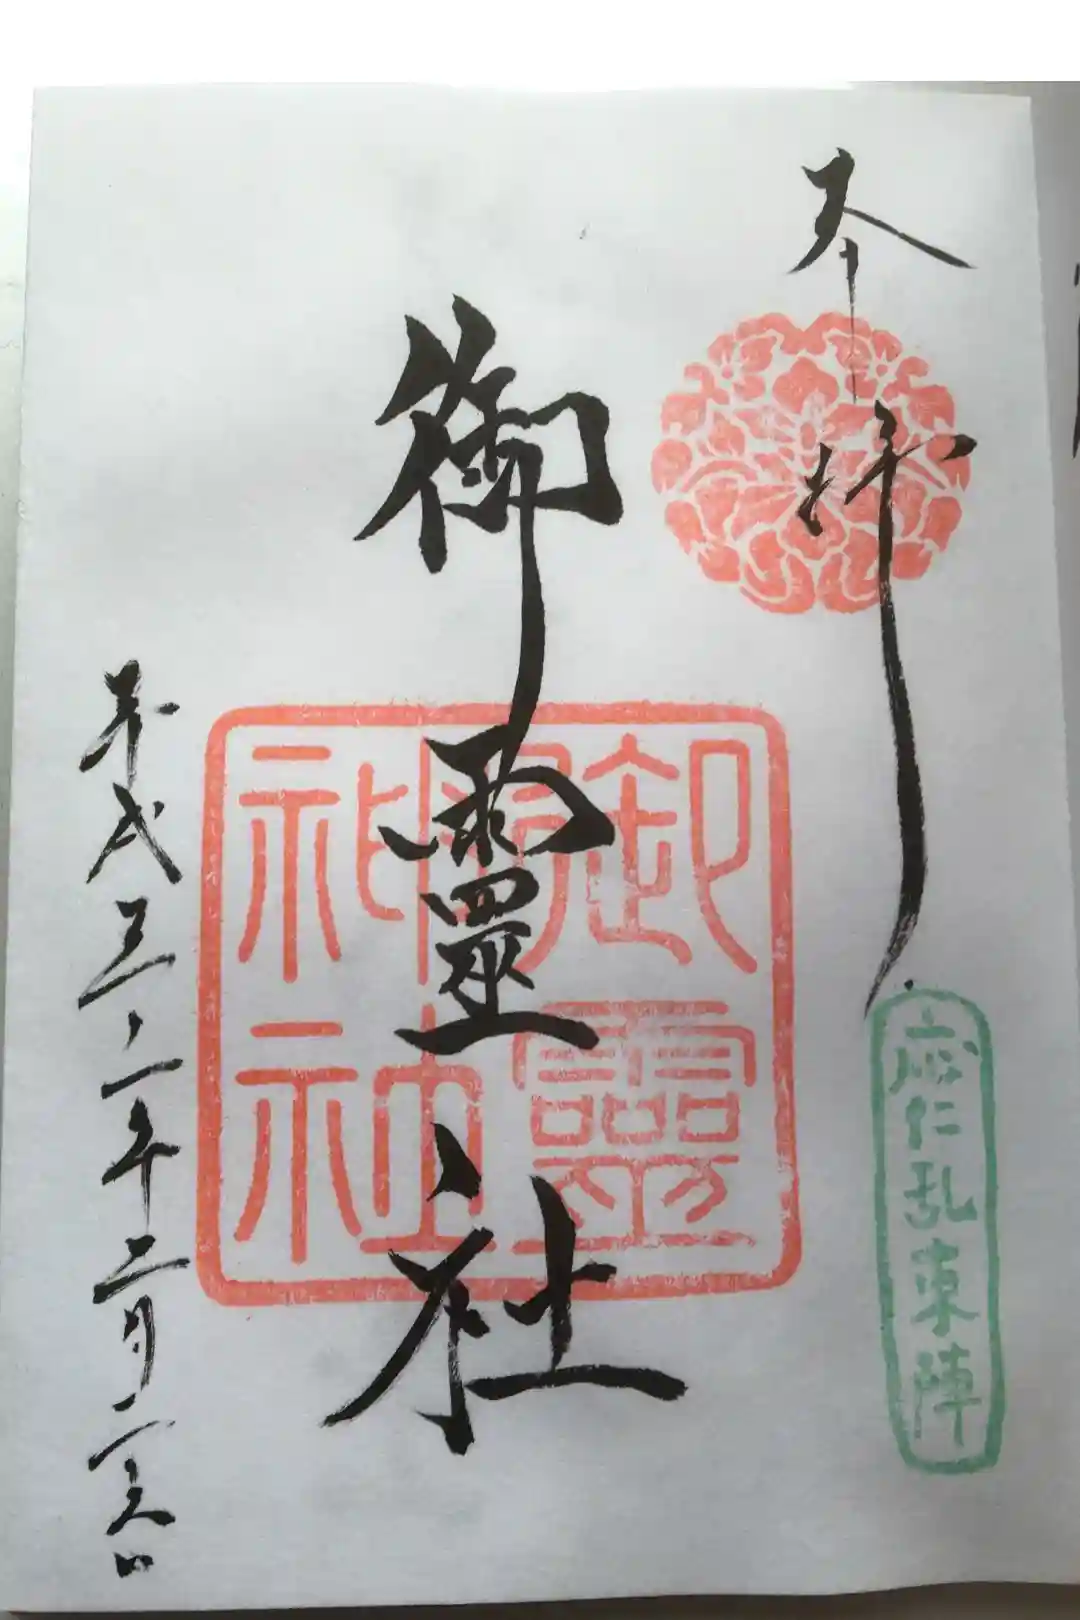 奉拝
応仁乱東陣
御靈社
御靈神社
平成三十一年二月二六日